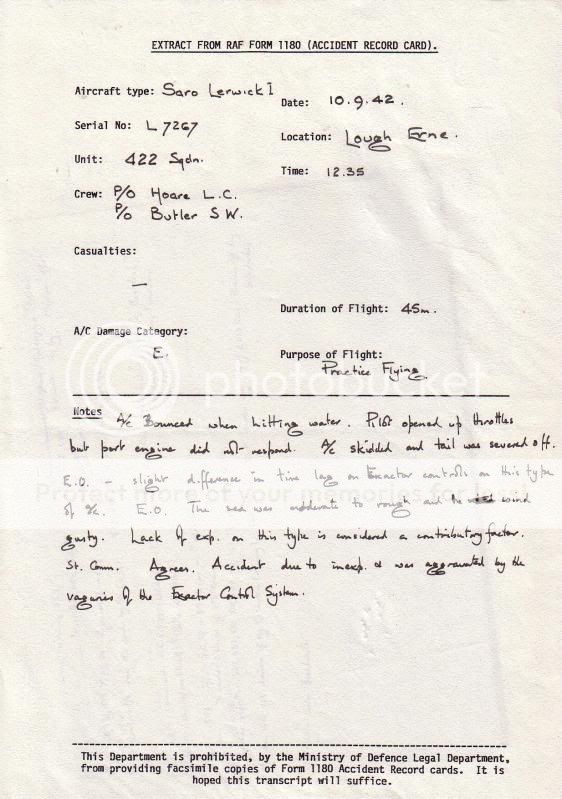 EXTRACT FROM RAF FORM 1180 (ACCIDENT RECORD CARD).
Aircraft type: Saro Lerwick I
Date: 10.9.42.
Serial No: L7267
Location: Lough Erne.
Unit: 422 Sqdn.
Time: 12.35
Crew: P/O Hoare L.C.
P/O Butler S W.
Casualties:
—
Duration of Flight: 45m.
A/C Damage Category:
E.
Purpose of Flight:
Practice Flying
photobucket
Notes A/c Bounced when hitting water. Pilot opened up throttles
but port engine did not respond. A/c skidded and tail was severed off.
E.O. - slight difference in time lag on Exactor controls on this type
Protect more of your memories for less!
of a/c. E.O. The sea was moderate to rough and the wind
gusty. Lack of exp. on this type is considered a contributory factor.
St. Comm. Agrees. Accident due to inexp. & was aggravated by the
vagaries of the Exactor Control System.
This Department is prohibited, by the Ministry of Defence Legal Department,
from providing facsimile copies of Form 1180 Accident Record cards. It is
hoped this transcript will suffice.